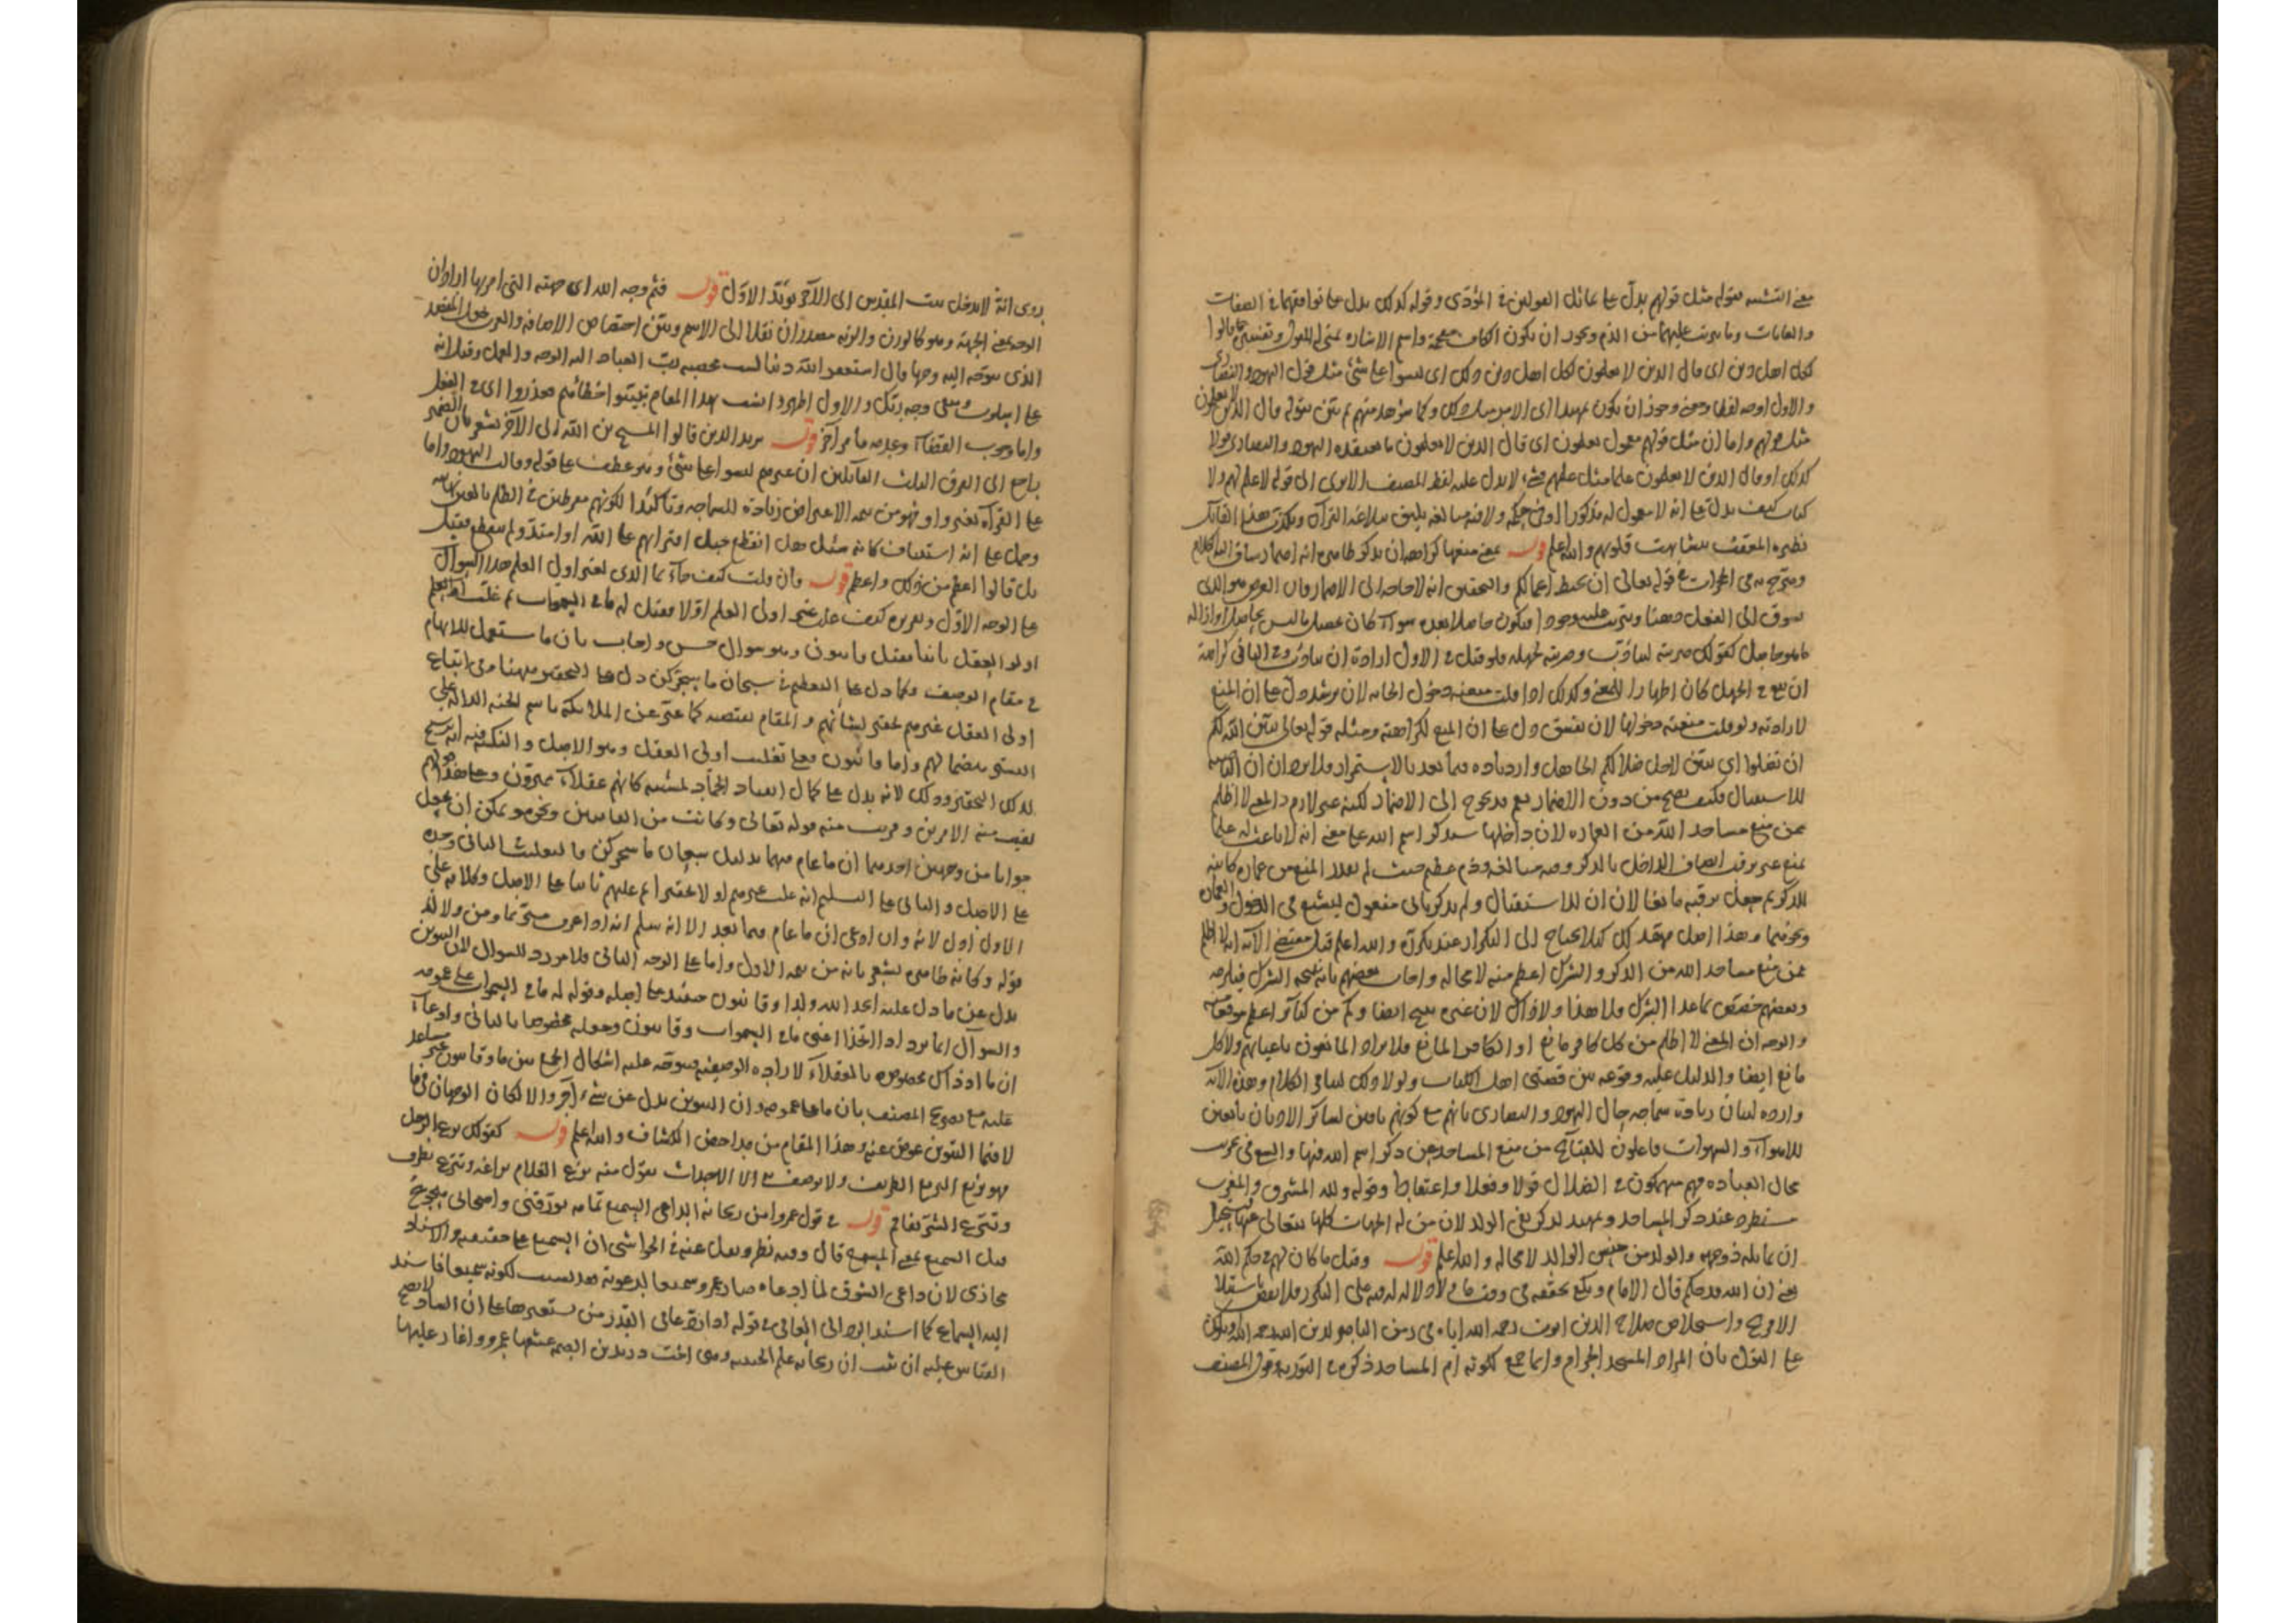 معنى التشبيه بقوله مثل قولهم يدل على تماثل القولين في المؤدى وقوله كذلك يدل على توافقهما في الصفات
والغايات وما يترتب عليهما من الذم ويجوز ان يكون الكاف مقحمة واسم الاشارة
كل اهل دين اى قال الذين لا يعلمون لكل اهل دين ذلك اى ليسوا على شئ مثل قول اليهود والنصارى
والاول اوجه لفظا ومعنى وجوز ان يكون تمهيدا اى الامر مثل ذلك وكما شوهد منهم ثم بين بقوله قال الذين لا يعلمون
مثل قولهم واما ان مثل قولهم مفعول يعلمون اى قال الذين لا يعلمون ما يعتقده اليهود والنصارى قولا
كذلك او قال الذين لا يعلمون علما مثل علمهم فشئ لا يدل عليه لفظ المصنف الا ترى الى قوله لا علم لهم ولا
كتاب كيف يدل على انه لا مفعول له مذكورا او فى حكمه ولانه مبالغة يليق ببلاغة القرآن
نظيره المعقب بتشابهت قلوبهم والله اعلم قوله يعنى منعها كراهة ان يذكر ظاهر في انه اضمار
في الحجرات في قوله تعالى ان تحبط اعمالكم والتحقيق انه لا حاجة الى الاضمار فان الغرض هو الذى
يسوق الى الفعل ذهنا ويترتب عليه وجودا فيكون حاصلا بعده سواء كان تحصيل ما ليس بحاصل او ازالة
ما هو حاصل كقولك ضربته ليتأدب وضربته لجهله فلو قيل في الاول ارادة ان يتأدب وفي الثانى كراهة
ان يبقى في الجهل كان اظهارا للمعنى وكذلك اذا قلت منعته دخول الخانة لان يرشد دل على ان المنع
لارادته ولو قلت منعته دخولها لان يفسق دل على ان المنع لكراهته ومثله قوله تعالى يبين الله لكم
ان تضلوا اى يبين لاجل ضلالكم الحاصل وازدياده فيما بعد بالاستمرار فلا يرد ان ان الناصبة
للاستقبال فكيف يصح من دون الاضمار نعم قد يحوج الى الاضمار لكنه غير لازم والمعنى لا اظلم
ممن منع مساجد الله من العمارة لان داخلها سيذكر اسم الله على معنى انه لا باعث له على
منع غير ترقب اتصاف الداخل بالذكر وفيه مبالغة وذم عظيم حيث لم يعلل المنع من عمارة كائنة
للذكر ثم جعل ترقبه مانعا لان ان للاستقبال ولم يذكر ثانى مفعول ليشيع في الدخول والعمارة
ونحوهما وهذا اصل مهد لك كيلا يحتاج الى التكرار عند تكرره والله اعلم قيل مقتضى الآية انه لا اظلم
ممن منع مساجد الله من الذكر والشرك اعظم منه لا محالة واجاب بعضهم بانه نتيجة الشرك
وبعضهم خصص بما عدا الشرك فلا هذا ولا ذاك لان غيره نتيجه ايضا وكم من كبائر اعظم موقعا
والوجه ان المعنى لا اظلم من كل كافر مانع او الكافر المانع فلا يراد المانعون باعيانهم ولا كل
مانع ايضا والدليل عليه وقوعه بين قصتى اهل الكتاب ولولا ذلك لتنافى الكلام وهذه الآية
واردة لبيان زيادة سماجة حال اليهود والنصارى بانهم مع كونهم نافين لسائر الاديان تابعين
للاهواء والشهوات فاعلون للقبائح من منع المساجد عن ذكر اسم الله فيها والسعى في تخريب
محال العبادة فهم منهمكون في الضلال قولا وفعلا واعتقادا وقوله ولله المشرق والمغرب
مستطرد عند ذكر المساجد وتمهيد لذكر نفى الولد لان من له الجهات كلها يتعالى عنها يستحيل
ان يماثله ذو جهة والولد من جنس الوالد لا محالة والله اعلم قوله وقيل ما كان لهم في حكم الله
يعنى ان الله قد حكم قال الامام ويكفى تحققه في وقت ما
الافرنج واستخلاص صلاح الدين ايوب رحمه الله اياه في زمن الناصر لدين الله رحمه الله
على القول بان المراد المسجد الحرام وانما جمع لكونه ام المساجد ذكره في التورية قول المصنف
روى انه لا يدخل بيت المقدس الى الآخر يؤيد الاول قوله فثم وجه الله اى جهته التى امر بها اراد ان
الوجه بمعنى الجهة وهو كالوزن والزنة مصدران نقلا الى الاسم وبين اختصاص الاضافة
الذى يتوجه اليه وجها قال استغفر الله ذنبا لست محصيه رب العباد اليه الوجه والعمل وقيل انه
على اسلوب ويبقى وجه ربك والاول اظهر وانسب بهذا المقام
واما وجوب القضاء وعدمه فامر آخر قوله يريد الذين قالوا المسيح بن الله الى الآخر يشعر بان الضمير
راجع الى الفرق الثلث القائلين ان غيرهم ليسوا على شئ وهو عطف على قوله وقالت اليهود واما
على القراءة بغير واو فهو من تتمة الاعتراض زيادة للسماجة وتأكيدا لكونهم مفرطين في الظلم
وحمل على انه استيناف كانه سئل هل انقطع حبل افترائهم على الله او امتد ولم ينقطع فقيل
بل قالوا اعظم من ذلك واعظم قوله فان قلت كيف جاء بما الذى لغير اولى العلم هذا السؤال
على الوجه الاول وتقريره كيف غلب غير اولى العلم اولا فقيل له ما في السموات ثم غلب اولو العلم
اولو العقل ثانيا فقيل قانتون وهو سؤال حسن واجاب بان ما تستعمل للابهام
في مقام الوصف فكما دل على التعظيم في سبحان ما سخركن دل على التحقير ههنا
اولى العقل غيرهم تحقيرا لشأنهم والمقام يقتضيه كما عبر عن الملائكة باسم الجنة الدالة على
التستر بغضا لهم واما قانتون فعلى تغليب اولى العقل وهو الاصل والنكتة فيه
لذلك التحقير وذلك لانه يدل على كمال انقياد الجماد لمشيته كانهم عقلاء مميزون وعلى هذا
وقريب منه قوله تعالى وكانت من القانتين ونحوه ويمكن ان يجعل
جوابا من وجهين احدهما ان ما عام فيهما بدليل سبحان ما سخركن والتغليب الثانى وحده
على الاصل والثانى على التسليم انه غلب غيرهم اولا تحقيرا ثم غلبهم ثانيا على الاصل وكلامه على
الاول ادل لانه وان ادعى ان ما عام فيما بعد الا انه سلم انه
قوله وكانه ظاهر يشعر بانه من تتمة الاول واما على الوجه الثانى فلا مورد للسؤال لان التنوين
بدل عن ما دل عليه اتخذ الله ولدا وقانتون حينئذ على اصله وقوله له ما في السموات على عمومه
والسؤال انما يرد اذا اتحد اعنى ما في السموات وقانتون وجعله مخصوصا بالثانى وادعاء
ان ما اذ ذاك مخصوصة بالعقلاء لارادة الوصفية فيتوجه عليه اشكال الجمع بين ما وقانتون غير مساعد
عليه مع تصريح المصنف بان ما على عمومه وان التنوين بدل عن شئ آخر والا لكان الوجهان
لا فيما التنوين عوض عنه وهذا المقام من مداحض الكشاف والله اعلم قوله كقولك بزع الرجل
فهو بزيع البزيع الظريف ولا يوصف به الا الاحداث يقول منه بزع الغلام بزاعة وتبزع تظرف
وتبزع الشر تفاقم قوله في قول عمرو امن ريحانة الداعى السميع تمامه يؤرقنى واصحابى هجوع
قيل السميع بمعنى المسمع قال وفيه نظر ونقل عنه في الحواشى ان السميع على حقيقته والاسناد
مجازى لان داعى الشوق لما دعاه صار عمرو سميعا لدعوته فقد تسبب لكونه سميعا فاسند
اليه السماع كما اسند الى العافى في قوله اذا رد عافى القدر من يستعيرها على ان الشاذ لا يصح
القياس عليه ان ثبت ان ريحانة علم الحبيبة وهى اخت دريد بن الصمة عشقها عمرو واغار عليها